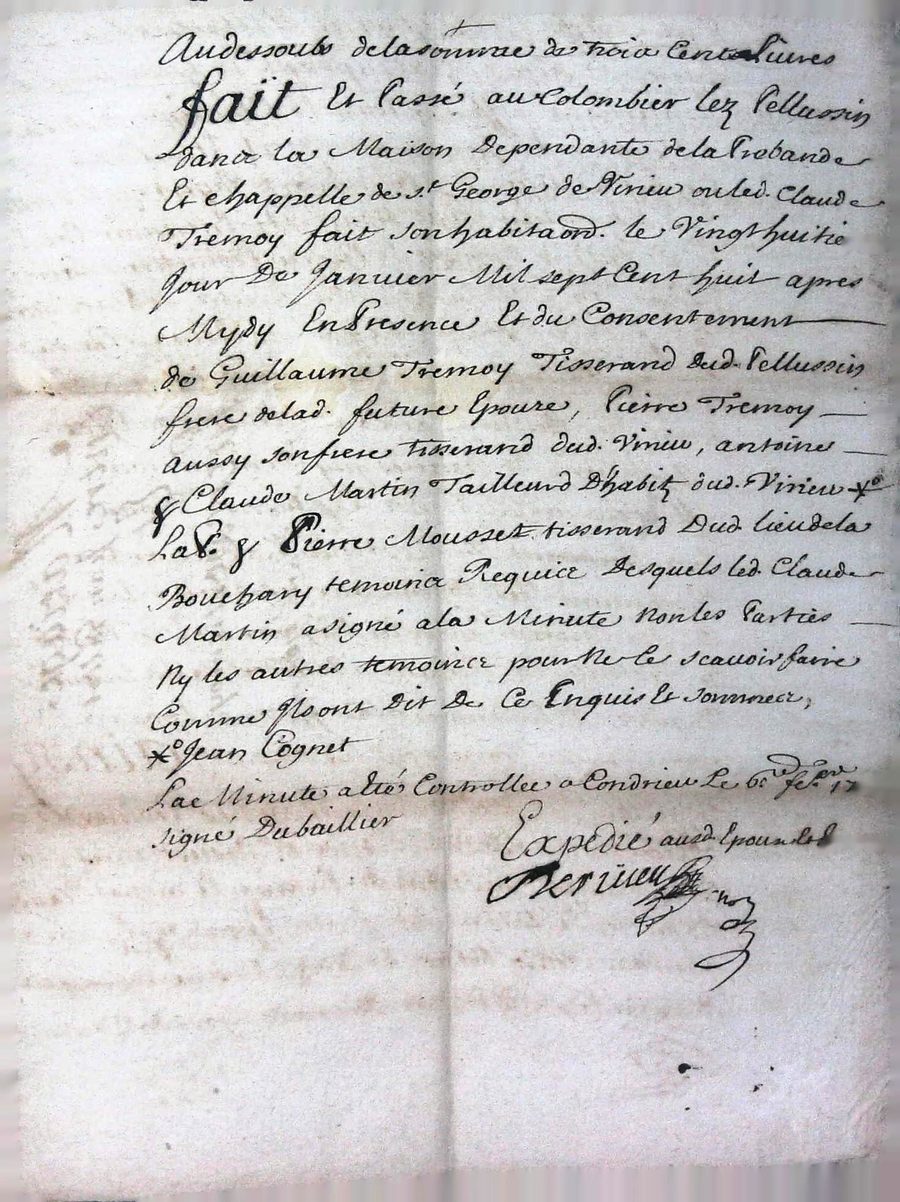 Audessoubs delasomme de trois Cents Livres
fait Et Passé au Colombier lez Pellussin
dans la Maison Dependante de la Probande
Et chappelle de st George de Virieu ou led. Claude
Tremoy fait son habitaon. le Vingt huitie
Jour De Janvier Mil sept Cent huit apres
Mydy En Presence Et du Consentement
de Guillaume Tremoy Tisserand dud. Pellussin
frere delad. future Epouze, Pierre Tremoy
aussy son frere tisserand dud. Virieu, antoine
& Claude Martin Tailleurs D'habitz dud. Virieu
& Pierre Mousset tisserand Dud. lieu dela
Bouchary temoins Requis Desquels led. Claude
Martin a signé a la Minute non les Parties
Ny les autres temoins pour Ne le scavoir faire
Comme Ils ont Dit De Ce Enquis Et sommes,
Jean Cognet
Lae Minute a Eté Controllee a Condrieu Le 6e feb.
signé Dubaillier
Expedié ausd. Epoux